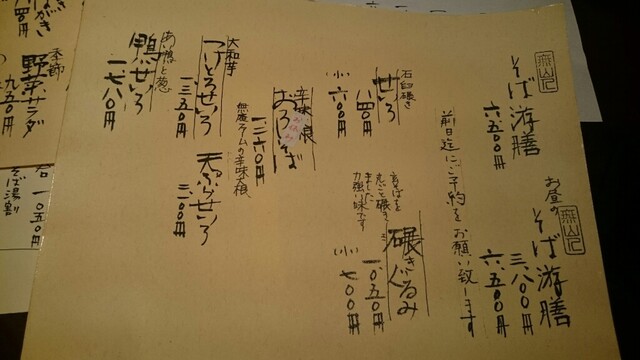 そば游膳
六.五〇〇円
お昼の
そば游膳
三.八〇〇円
六.五〇〇円
前日迄にご予約をお願い致します
石臼碾き
せいろ
八四〇円
(小)六〇〇円
玄そばを
丸ごと碾き
ました
力強い味です
碾きぐるみ
一.〇五〇円
(小)七〇〇円
辛味大根
おろしそば
一二六〇円
無農ファームの辛味大根
大和芋
つけとろせいろ
一.三五〇円
天ぷらせいろ
あい鴨と葱
鴨せいろ
一.七八〇円
季節
野菜サラダ
九五〇円
一〇五〇円
そば湯割